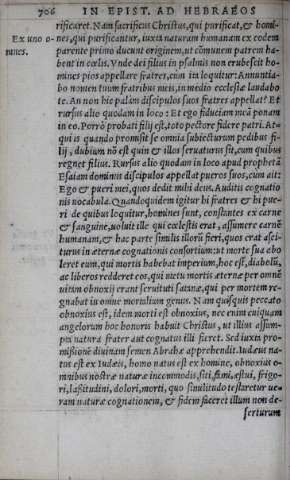 706 IN EPIST. AD HEBRAEOS
rificaret. Nam sacrificus Christus, qui purificat, & homi-
Ex uno o- nes, qui purificantur, iuxta naturam humanam ex eodem
mnes. parente primo ducunt originem, ut cōmunem patrem ha-
bent in cœlis. Vnde dei filius in psalmis non erubescit ho-
mines pios appellare fratres, cum ita loquitur: Annuntia-
bo nomen tuum fratribus meis, in medio ecclesiæ laudabo
te. An non hic palàm discipulos suos fratres appellat? Et
rursus alio quodam in loco: Et ego fiduciam meā ponam
in eo. Porrò probati filij est, toto pectore fidere patri. At-
qui is quando promisit se omnia subiecturum pedibus fi-
lij, dubium nō est quin & illos seruaturus sit, cum quibus
regnet filius. Rursus alio quodam in loco apud prophetā
Esaiam dominus discipulos appellat pueros suos, cum ait:
Ego & pueri mei, quos dedit mihi deus. Auditis cognatio
nis uocabula. Quandoquidem igitur hi fratres & hi pue-
ri de quibus loquitur, homines sunt, constantes ex carne
& sanguine, uoluit ille qui cœlestis erat, assumere carnē
humanam, & hac parte similis illorū fieri, quos erat asci-
turus in æternæ cognationis consortium: ut morte sua abo
leret eum, qui mortis habebat imperium, hoc est, diabolū,
ac liberos redderet eos, qui metu mortis æternæ per omnē
uitam obnoxij erant seruituti satanæ, qui per mortem re-
gnabat in omne mortalium genus. Nam quisquis peccato
obnoxius est, idem morti est obnoxius, nec enim cuiquam
angelorum hoc honoris habuit Christus, ut illius assum-
pta natura frater aut cognatus illi fieret. Sed iuxta pro-
missionē diuinam semen Abrahæ apprehendit. Iudæus na-
tus est ex Iudæis, homo natus est ex homine, obnoxius o-
mnibus nostræ naturæ incommodis, siti, fami, æstui, frigo-
ri, lassitudini, dolori, morti, quo similitudo testaretur ue-
ram naturæ cognationem, & fidem faceret illum non de-
serturum